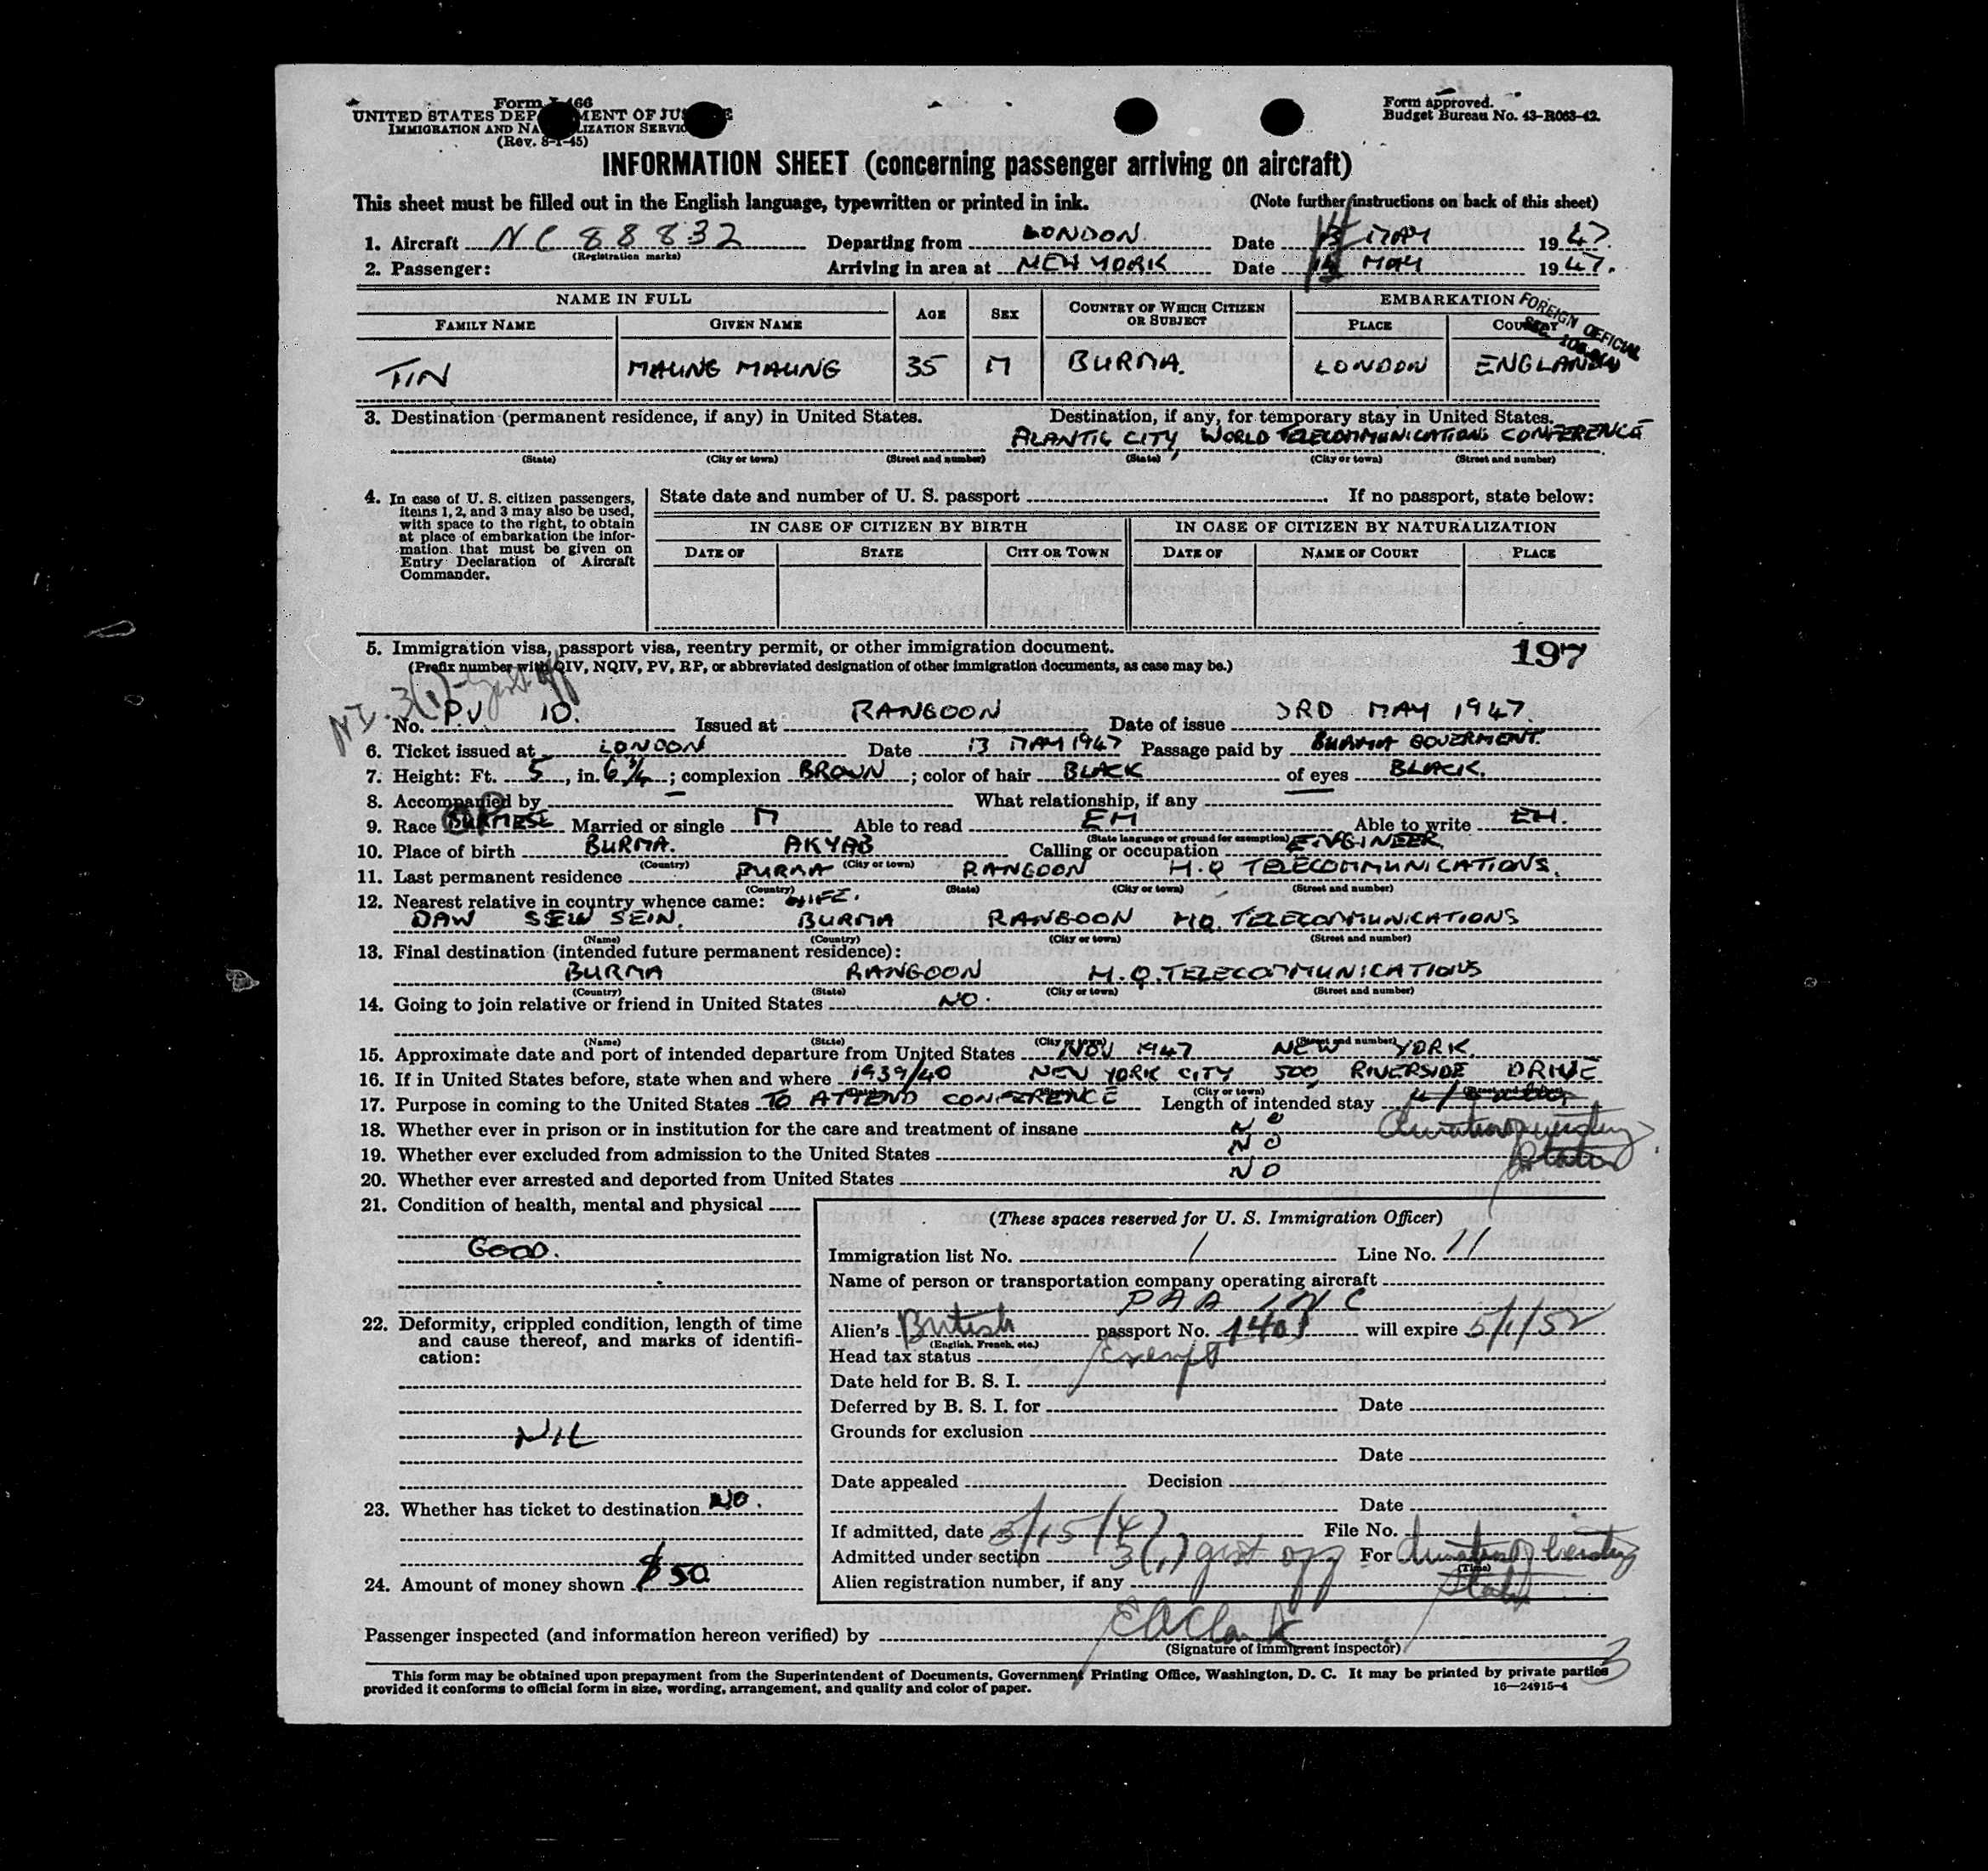 Form I-466
UNITED STATES DEPARTMENT OF JUSTICE
IMMIGRATION AND NATURALIZATION SERVICE
(Rev. 8-1-45)
Form approved.
Budget Bureau No. 43-R063-42.
INFORMATION SHEET (concerning passenger arriving on aircraft)
This sheet must be filled out in the English language, typewritten or printed in ink. (Note further instructions on back of this sheet)
1. Aircraft NC 88832 Departing from LONDON. Date MAY 1947.
(Registration marks)
2. Passenger: Arriving in area at NEW YORK Date MAY 1947.
NAME IN FULL AGE SEX COUNTRY OF WHICH CITIZEN OR SUBJECT EMBARKATION
FAMILY NAME GIVEN NAME PLACE COUNTRY
FOREIGN OFFICIAL
TIN MAUNG MAUNG 35 M BURMA. LONDON ENGLAND
3. Destination (permanent residence, if any) in United States. Destination, if any, for temporary stay in United States.
ALANTIC CITY, WORLD TELECOMMUNICATIONS CONFERENCE
(State) (City or town) (Street and number) (State) (City or town) (Street and number)
4. In case of U. S. citizen passengers, items 1, 2, and 3 may also be used, with space to the right, to obtain at place of embarkation the information that must be given on Entry Declaration of Aircraft Commander.
State date and number of U. S. passport . If no passport, state below:
IN CASE OF CITIZEN BY BIRTH IN CASE OF CITIZEN BY NATURALIZATION
DATE OF STATE CITY OR TOWN DATE OF NAME OF COURT PLACE
5. Immigration visa, passport visa, reentry permit, or other immigration document. 197
(Prefix number with QIV, NQIV, PV, RP, or abbreviated designation of other immigration documents, as case may be.)
No. P.V 10. Issued at RANGOON Date of issue 3RD MAY 1947.
6. Ticket issued at LONDON Date 13 MAY 1947 Passage paid by BURMA GOVERMENT.
7. Height: Ft. 5, in. 6 3/4; complexion BROWN; color of hair BLACK of eyes BLACK.
8. Accompanied by What relationship, if any
9. Race BURMESE Married or single M Able to read EH Able to write EH.
(State language or ground for exemption)
10. Place of birth BURMA. AKYAB Calling or occupation ENGINEER
(Country) (City or town)
11. Last permanent residence BURMA RANGOON H.Q TELECOMMUNICATIONS.
(Country) (State) (City or town) (Street and number)
12. Nearest relative in country whence came: WIFE.
DAW SEW SEIN. BURMA RANGOON HQ. TELECOMMUNICATIONS
(Name) (Country) (City or town) (Street and number)
13. Final destination (intended future permanent residence):
BURMA RANGOON H.Q. TELECOMMUNICATIONS
(Country) (State) (City or town) (Street and number)
14. Going to join relative or friend in United States NO.
(Name) (State) (City or town) (Street and number)
15. Approximate date and port of intended departure from United States NOV 1947 NEW YORK.
16. If in United States before, state when and where 1939/40 NEW YORK CITY 500 RIVERSIDE DRIVE
(Date) (State) (City or town) (Street and number)
17. Purpose in coming to the United States TO ATTEND CONFERENCE Length of intended stay
18. Whether ever in prison or in institution for the care and treatment of insane NO
19. Whether ever excluded from admission to the United States NO
20. Whether ever arrested and deported from United States NO
21. Condition of health, mental and physical
GOOD.
22. Deformity, crippled condition, length of time and cause thereof, and marks of identification:
NIL
23. Whether has ticket to destination NO.
24. Amount of money shown $50
(These spaces reserved for U. S. Immigration Officer)
Immigration list No. 1 Line No. 11
Name of person or transportation company operating aircraft
PAA INC
Alien's British passport No. 1401 will expire 5/1/52
(English, French, etc.)
Head tax status Exempt
Date held for B. S. I.
Deferred by B. S. I. for Date
Grounds for exclusion
Date
Date appealed Decision
Date
If admitted, date 5/15/47 File No.
Admitted under section 3(1) For
(Time)
Alien registration number, if any
Passenger inspected (and information hereon verified) by EA Clark
(Signature of immigrant inspector)
This form may be obtained upon prepayment from the Superintendent of Documents, Government Printing Office, Washington, D. C. It may be printed by private parties
provided it conforms to official form in size, wording, arrangement, and quality and color of paper. 16—24915-4
3